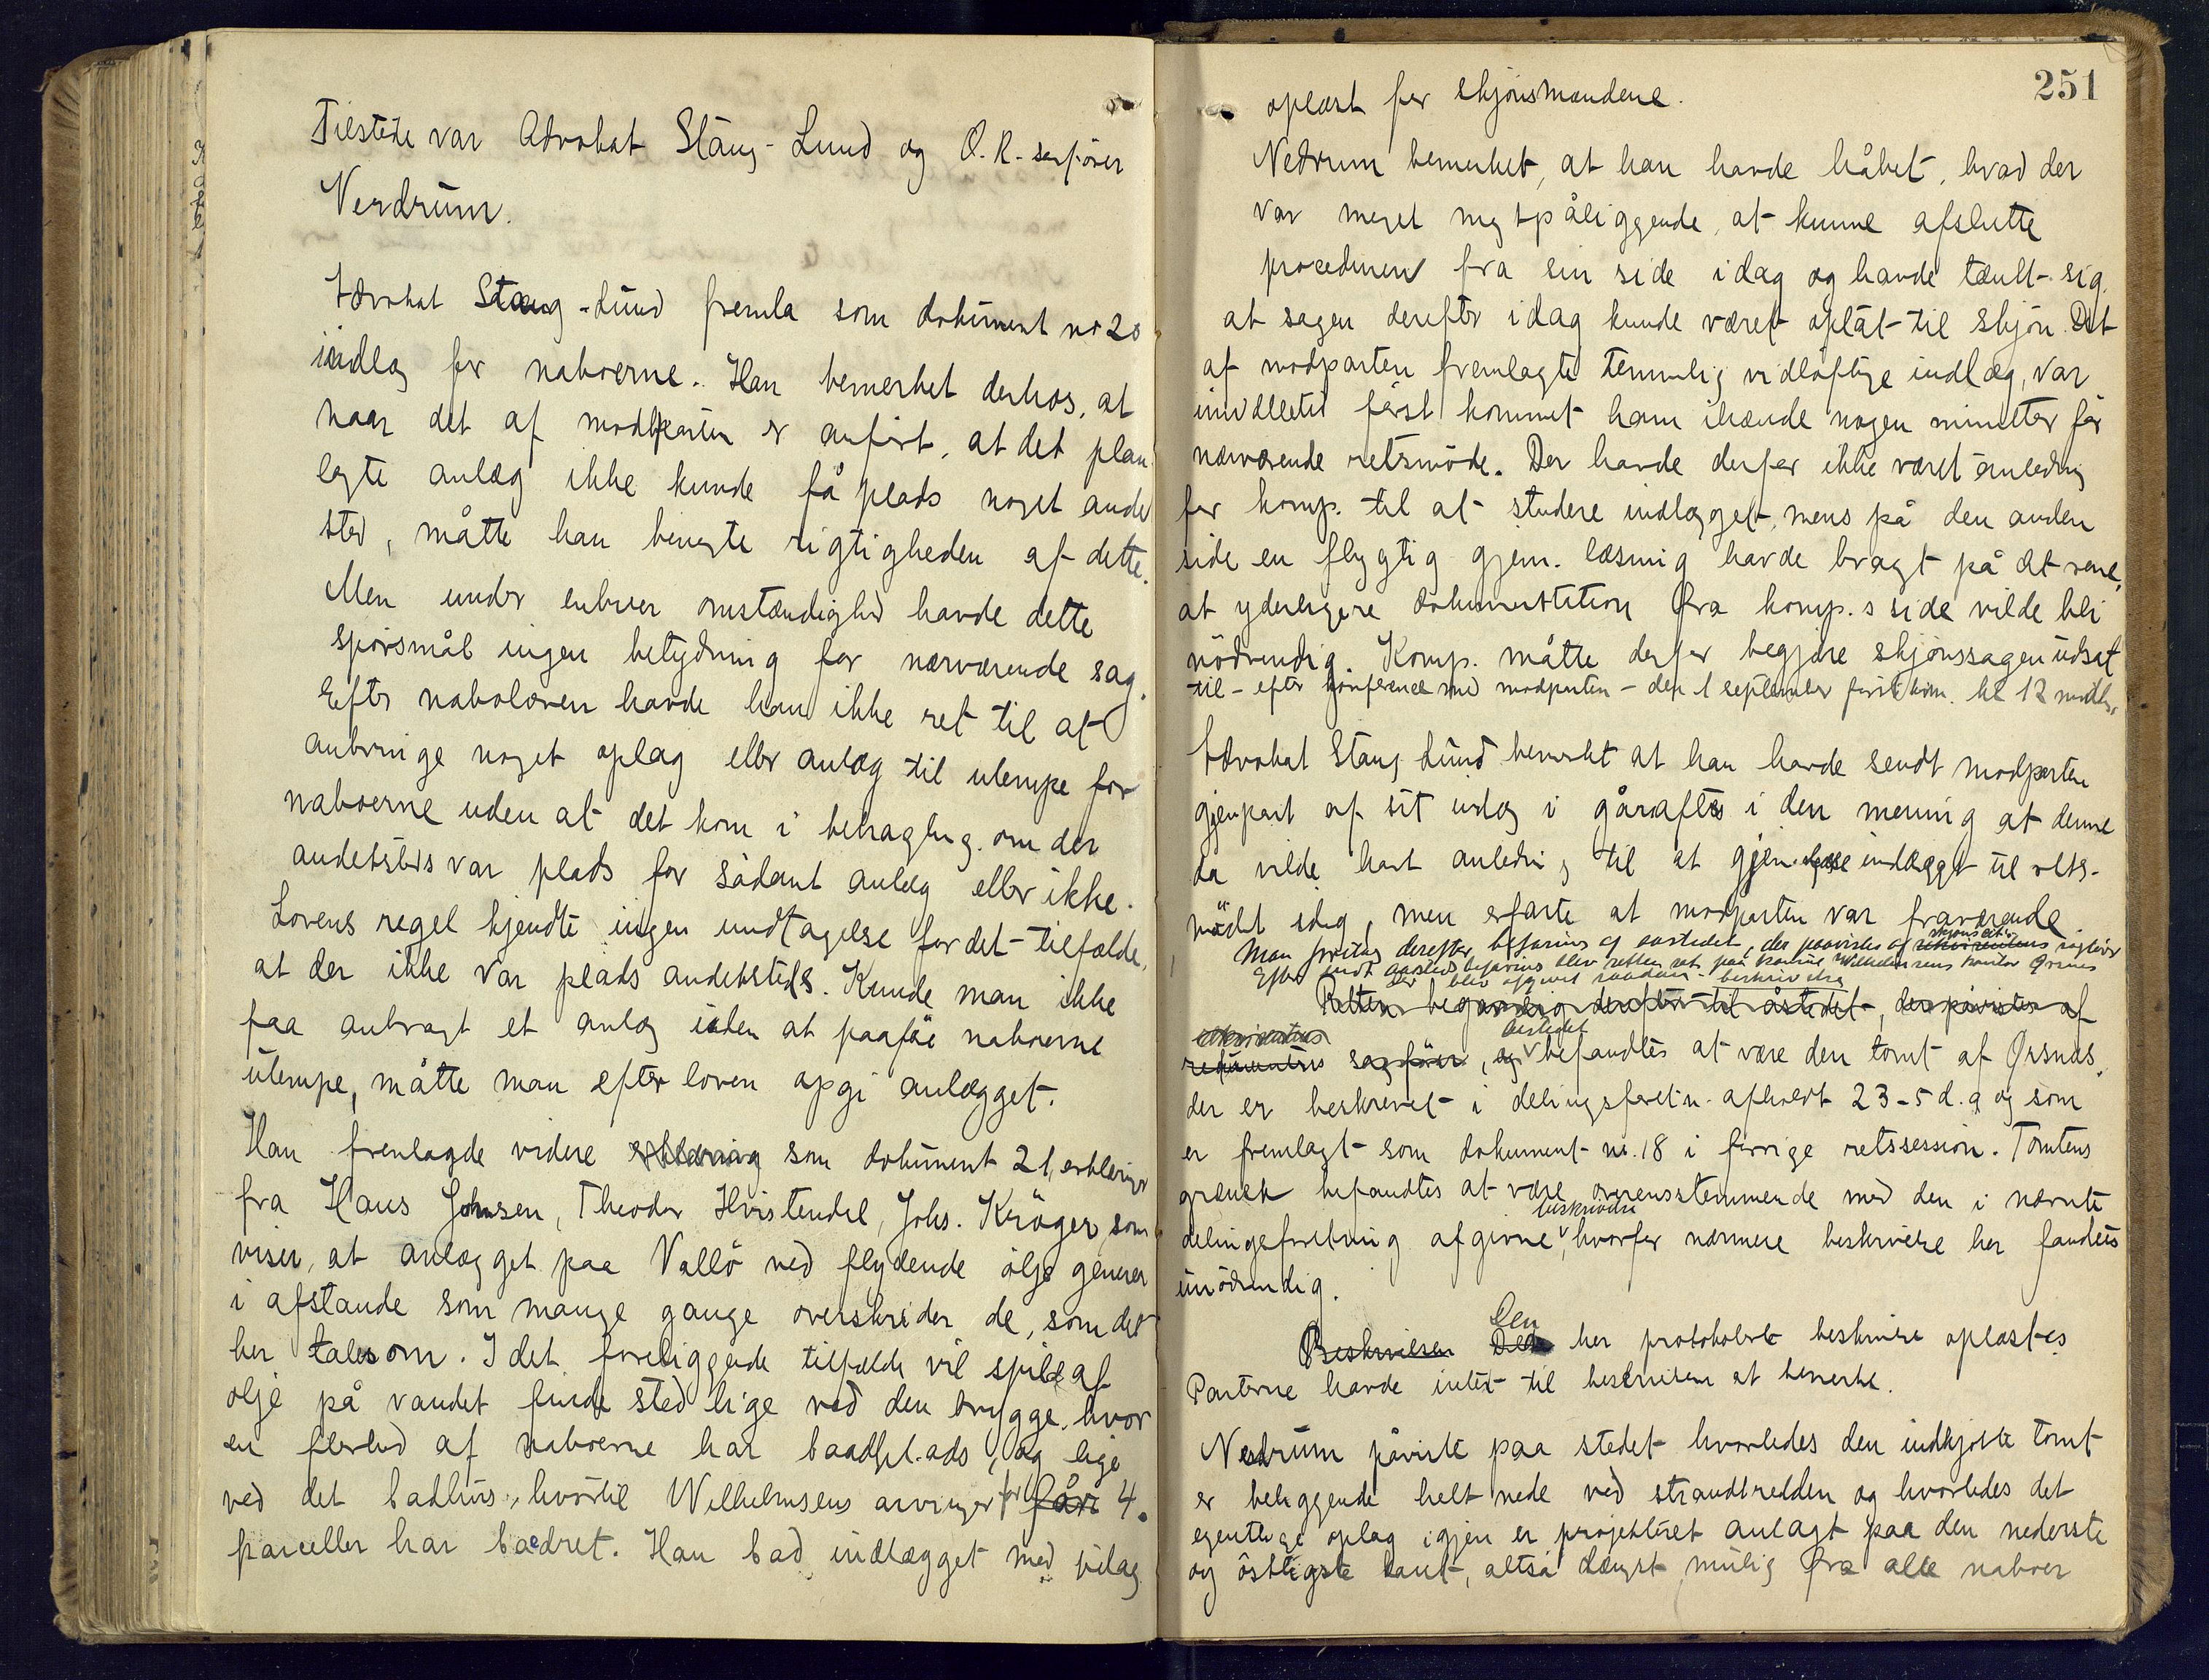 Tilstede var Advokat Stang-Lund og O.R. sagfører
Nerdrum.
Advokat Stang-Lund fremla som dokument nr 20
indlæg for naboerne. Han bemerket derhos, at
naar det af modparten er anført, at det plan
lagte anlæg ikke kunde få plads noget andet
sted, måtte han benegte rigtigheden af dette.
Men under enhver omstændighed havde dette
spørsmål ingen betydning for nærværende sag.
Efter naboloven havde han ikke ret til at
anbringe noget oplag eller anlæg til ulempe for
naboerne uden at det kom i betragtng. om der
andetsteds var plads for sådant anlæg eller ikke.
Lovens regel kjendte ingen undtagelse for det tilfælde,
at der ikke var plads andetsteds. Kunde man ikke
faa anbragt et anlæg uden at paaføre naboerne
ulempe, måtte man efter loven opgi anlægget.
Han fremlagde videre erklæring som dokument 21, erklæringer
fra Hans Johnsen, Theodor Hvistendal, Johs. Kröger, som
viser, at anlægget paa Vallö ved flydende olje generer
i afstande som mange gange overskrider de, som det
her tales om. I det foreliggende tilfælde vil spild af
olje på vandet finde sted lige ved den brygge, hvor
en flerhed af naboerne har baadplads, og lige
ved det badhus, hvortil Wilhelmsens arvinger for får 4.
parceller har badret. Han bad indlægget med bilag
251
oplæst for skjönsmændene.
Nerdrum bemerket, at han havde håbet, hvad der
var meget magtpåliggende, at kunne afslutte
proceduren fra sin side idag og havde tænkt sig,
at sagen derefter idag kunde været optat til skjön. Det
af modparten fremlagte temmelig vidløftige indlæg, var
imidlertid først kommet ham ihænde nogen minutter før
nærværende retsmöde. Der havde derfor ikke været anledning
for komp. til at studere indlægget, mens på den anden
side en flygtig gjen. læsning havde bragt på det rene,
at yderligere dokumentation fra komp.s side vilde bli
nödvendig. Komp. måtte derfor begjære skjönssagen udsat
til – efter konference med modparten – den 1 september førstkom. kl 12 middag.
Advokat Stang Lund bemerket at han havde sendt modparten
gjenpart af sit indlæg i gåraftes i den mening at denne
da vilde havt anledning til at gjen. læse indlægget til rets-
mödet idag, men erfarte at modparten var fraværende.
skjönsret.s
Man foretog derefter befaring af aastedet, der paavistes af rekvirentens sagfører
Efter endt aastedsbefaring blev retten sat paa Wilhelmsens kontor Ørsnes
der blev afgivet saadan beskrivelse
Retten begav sig derefter til åstedet, der påvistes af
rekvirentens aastedet
rekvirentens sagfører, og befandtes at være den tomt af Ørsnæs,
der er beskrevet i delingsforretn. afholdt 23-5 d.a og som
er fremlagt som dokument nr. 18 i forrige retssession. Tomtens
grænser befandtes at være overensstemmende med den i nævnte
beskrivelse
delingsforretning afgivne, hvorfor nærmere beskrivelse her fandtes
unödvendig.
Den
Beskrivelsen Den her protokolerte beskrivelse oplæstes
Parterne havde intet til beskrivelsen at bemerke.
Nerdrum påviste paa stedet hvorledes den indkjøbte tomt
er beliggende helt nede ved strandbredden og hvorledes det
egentlige oplag igjen er projekteret anlagt paa den nederste
og østligste kant, altså længst mulig fra alle naboer